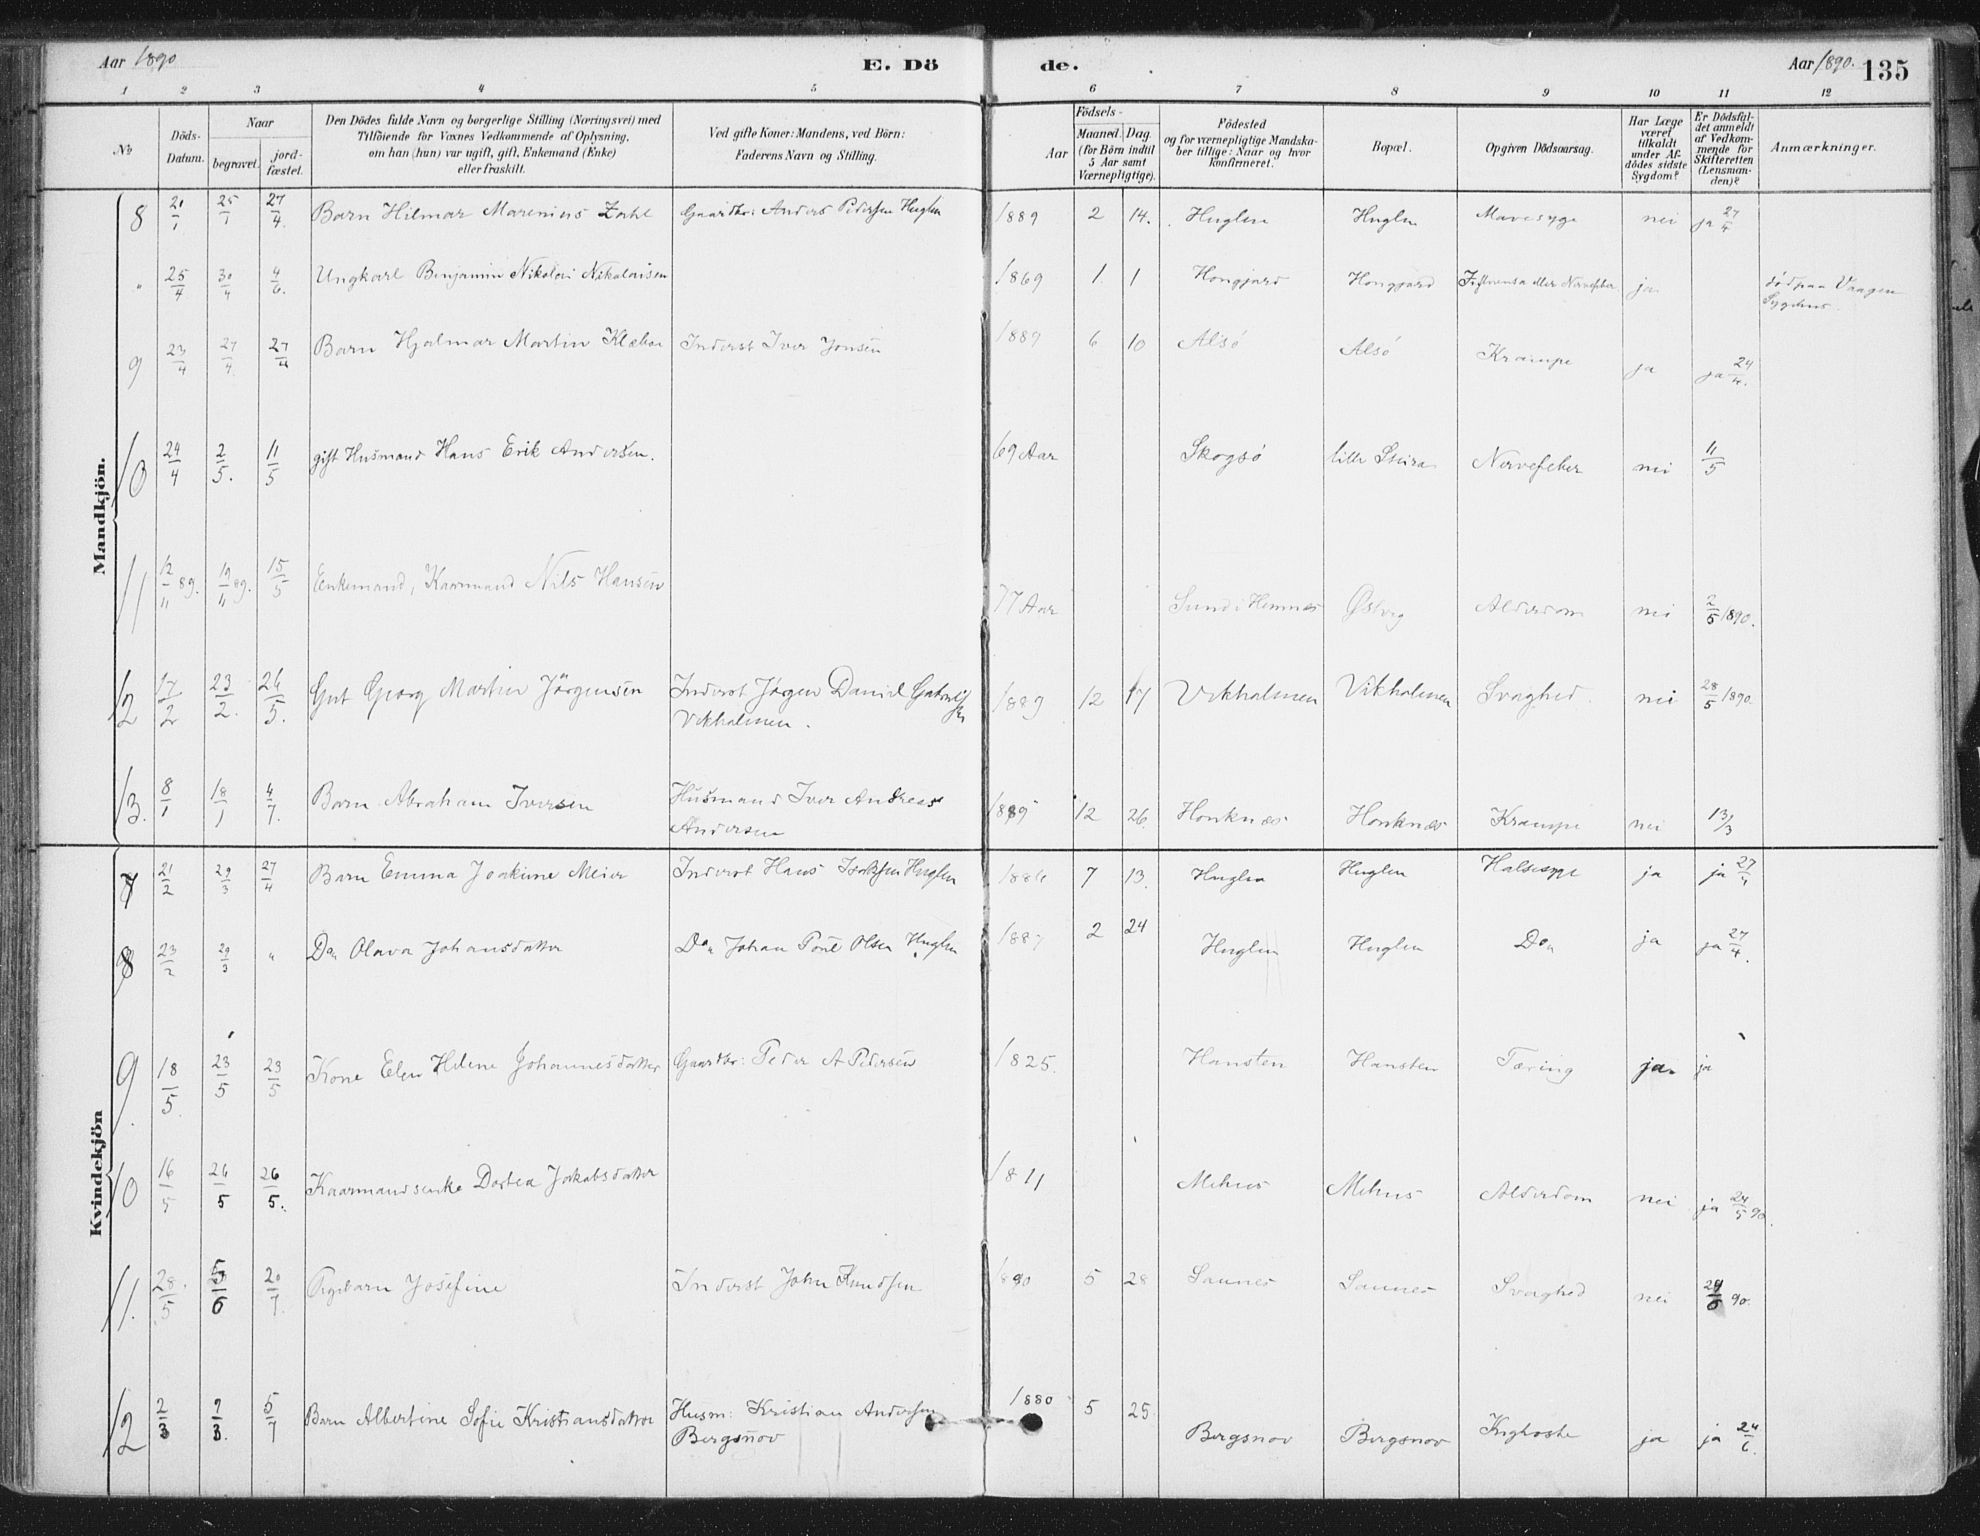 Aar 1890
E. Dö
de.
Aar 1890.
135
1 2 3 4 5 6 7 8 9 10 11 12
No
Döds-Datum.
Naar
begravet.
jord-fæstet.
Den Dödes fulde Navn og borgerlige Stilling (Næringsvei) med
Tilföiende for Voxnes Vedkommende af Oplysning,
om han (hun) var ugift, gift, Enkemand (Enke)
eller fraskilt.
Ved gifte Koner: Mandens, ved Börn:
Faderens Navn og Stilling.
Födsels-
Aar
Maaned. Dag.
(for Börn indtil
5 Aar samt
Værnepligtige).
Födested
og for værnepligtige Mandska-
ber tillige: Naar og hvor
konfirmeret.
Bopæl.
Opgiven Dödsaarsag.
Har Læge
været
tilkaldt
under Af-
dödes sidste
Sygdom?
Er Dödsfal-
det anmeldt
af Vedkom-
mende for
Skifteretten
(Lensman-
den)?
Anmærkninger.
Mandkjön.
8 21/1 25/1 27/4. Barn Hilmar Marenius Zahl Gaardbr: Anders Pedersen Huglen 1889 2 14. Huglen Huglen Mavesyge nei ja 27/4
" 25/4 30/4 4/6. Ungkarl Benjamin Nikolai Nikolaisen 1869 1. 1 Hongjard Hongjard Influensa eller Nervefeber ja død paa Vaagen
Sygehus.
9 23/4 27/4. 27/4 Barn Hjalmar Martin Klæboe Inderst Iver Jonsen 1889 6 10 Alsö Alsö Krampe ja ja 24/4.
10 24/4 2/5. 11/5 gift Husmand Hans Erik Andersen. 69 Aar Skogsö lille Steira Nervefeber nei 11/5
11 12/11 89. 19/11 89. 15/5 Enkemand, Kaarmand Nils Hansen 77 Aar Sund i Hemnes Østvig Alderdom nei 2/5 1890.
12 17/2 23/2. 26/5. Gut Georg Martin Jörgensen Inderst Jörgen Daniel Gabrielsen
Vikholmen. 1889 12 17 Vikholmen Vikholmen Svaghed. nei 28/5 1890.
13. 8/1 18/1 4/7. Barn Abraham Iversen Husmand Iver Andreas
Andersen 1889 12 26. Honknæs Honknæs Krampe nei 13/3
Kvindekjön
7 21/2 29/3 27/4 Barn Emma Joakime Meier Inderst Hans Isaksen Huglen 1886 7 13. Huglen Huglen Halssyge ja ja 27/4
8 23/2 29/3 " Do Olava Johansdatter Do Johan Povel Olsen Huglen 1887 2 24 Huglen Huglen Do ja ja 27/4.
9. 18/5. 23/5 23/5 Kone Elen Helene Johannesdatter Gaardbr: Peder A Pedersen 1825. Hansten Hansten Tæring ja. ja
10 16/5 26/5 26/5. Kaarmandsenke Dortea Jakobsdatter 1811 Mehus Mehus Alderdom nei ja 24/5 90.
11. 28/5 5/6 20/7. Pigebarn Josefine Inderst John Knudsen 1890 5 28 Saunes Saunes Svaghed nei 24/6 90.
12 2/3 9/3. 5/7 Barn Albertine Sofie Kristiansdatter Husm: Kristian Andersen
Bergsnov 1880 5 25. Bergsnov Bergsnov Kighoste ja ja 24/6.